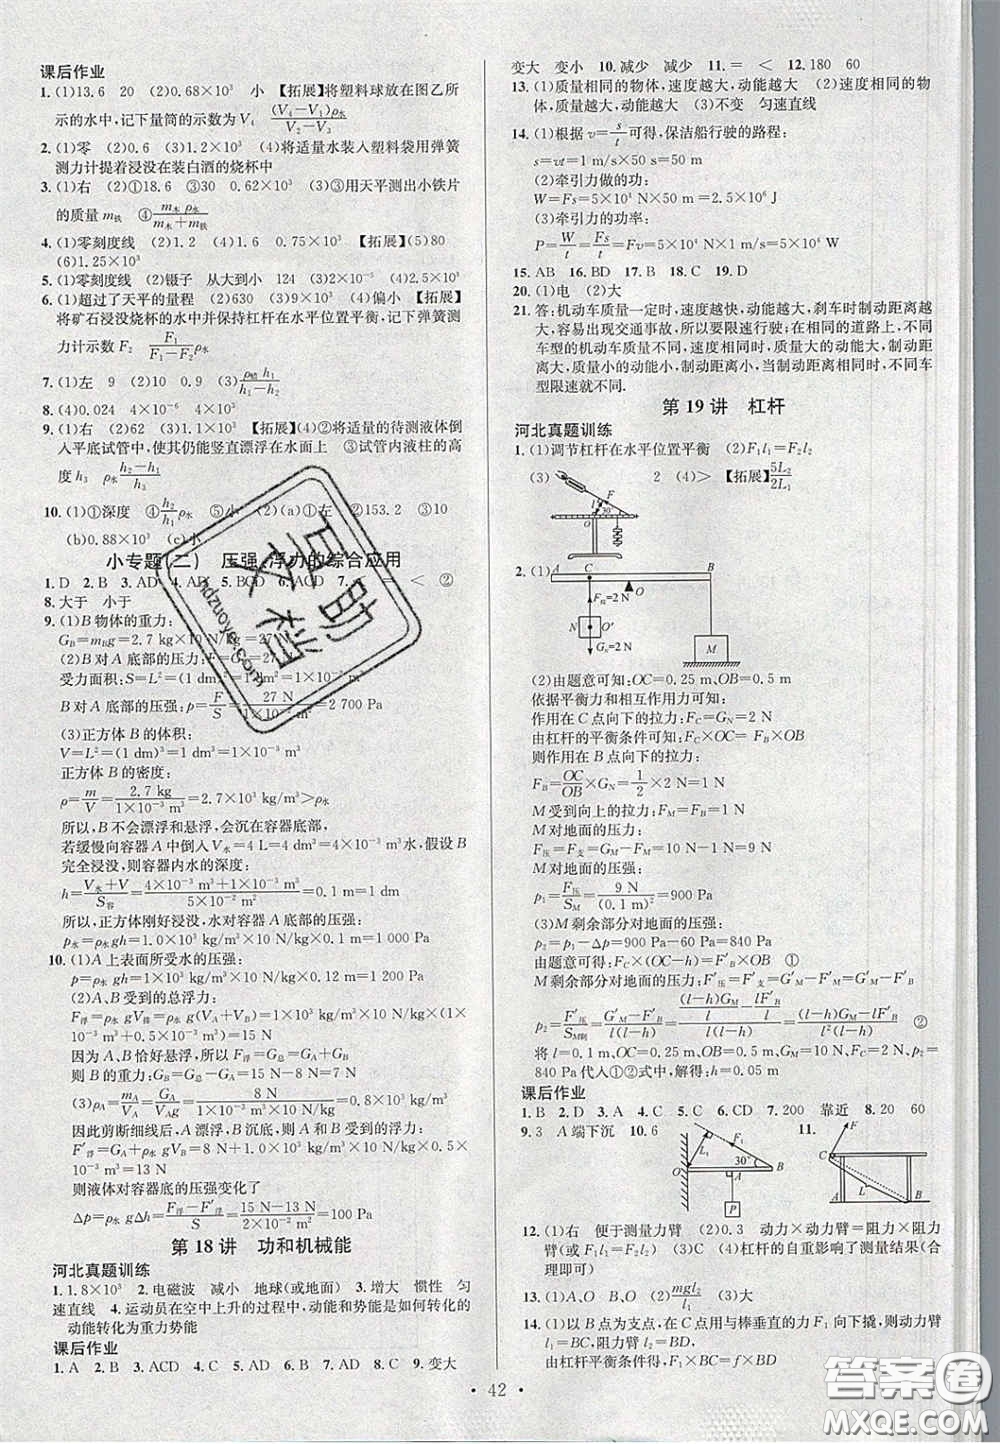 课后作业
1. (1)13.6 20 (2)0.68×10³ 小 【拓展】将塑料球放在图乙所
示的水中,记下量筒的示数为V₄ (V₄−V₁)/(V₂−V₃)
2. (1)零 (2)0.1 (3)0.8×10³ (4)将适量水装入塑料袋用弹簧
测力计提着浸没在装白酒的烧杯中
3. (1)右 (2)①18.6 ③30 0.62×10³ (3)③用天平测出小铁片
的质量m铁 ④m木ρ水/(m木+m铁)
4. (1)零刻度线 (2)1.2 (4)1.6 0.75×10³ 【拓展】(5)80
(6)1.25×10³
5. (1)零刻度线 (2)镊子 从大到小 124 (3)2×10⁻⁵ (4)6.2×10³
6. (1)超过了天平的量程 (2)630 (3)9×10³ (4)偏小 【拓展】
将矿石浸没烧杯的水中并保持杠杆在水平位置平衡,记下弹簧测
力计示数F₂ F₁/(F₁−F₂)ρ水
7. (1)左 9 (2)10 0.9 (3)ρ酒h₁/(h₁−h₂)
8. (4)0.024 4×10⁻⁶ 4×10³
9. (1)右 (2)62 (3)1.1×10³ 【拓展】(2)将适量的待测液体倒
入平底试管中,使其仍能竖直漂浮在水面上 ③试管内液柱的高
度h₃ (h₂−h₁)/h₃ρ水
10. (1)①深度 ④h₂/h₁ρ水 ⑤小 (2)(a)①左 ②153 ③10
(b)0.88×10³ (c)小
小专题(二) 压强、浮力的综合应用
1. D 2. B 3. AD 4. AD 5. BCD 6. AC 7. < ②
8. 大于 小于
9. (1)B物体的重力:
G_B=m_Bg=2.7 kg×10 N/kg=27 N
(2)B对A底部的压力:F=G_B=27 N
受力面积:S=L²=(1 dm)²=1×10⁻² m²
B对A底部的压强:p=F/S=27 N/(1×10⁻² m²)=2 700 Pa
(3)正方体B的体积:
V=L³=(1 dm)³=1 dm³=1×10⁻³ m³
正方体B的密度:
ρ=m/V=2.7 kg/(1×10⁻³ m³)=2.7×10³ kg/m³>ρ水
所以,B不会漂浮和悬浮,会沉在容器底部,
若缓慢向容器A中倒入V水=4 L=4 dm³=4×10⁻³ m³,假设B
完全浸没,则容器内水的深度:
h=(V水+V)/S容=(4×10⁻³ m³+1×10⁻³ m³)/(5×10⁻² m²)=0.1 m=1 dm
所以,正方体刚好浸没,水对容器A底部的压强:
p水=ρ水gh=1.0×10³ kg/m³×10 N/kg×0.1 m=1 000 Pa
10. (1)A上表面所受水的压强:
p=ρ水gh=1×10³ kg/m³×10 N/kg×0.12 m=1 200 Pa
(2)A、B受到的总浮力:
F浮=ρ水gV排=ρ水g(V_A+V_B)=1×10³ kg/m³×10 N/kg×(1×
10⁻³ m³+0.5×10⁻³ m³)=15 N
因为A、B恰好悬浮,则F浮=G总=G_A+G_B
所以,B的重力:G_B=G总−G_A=15 N−8 N=7 N
(3)ρ_A=m_A/V_A=G_A/(V_Ag)=8 N/(1×10⁻³ m³×10 N/kg)=0.8×10³ kg/m³
因此剪断细线后,A漂浮,B沉底,则A和B受到的总浮力:
F′浮=G_A+ρ水gV_B=8 N+1×10³ kg/m³×10 N/kg×0.5×
10⁻³ m³=13 N
则液体对容器底的压强变化了
Δp=ρ水gΔh=(F浮−F′浮)/S=(15 N−13 N)/(2×10⁻² m²)=100 Pa
第18讲 功和机械能
河北真题训练
1. 1.8×10³ 2. 电磁波 减小 地球(或地面) 3. 增大 惯性 匀
速直线 4. 运动员在空中上升的过程中,动能和势能是如何转化的
动能转化为重力势能
课后作业
1. A 2. B 3. ACD 4. C 5. AD 6. AD 7. BC 8. C 9. 变大
变大 变小 10. 减少 减少 11. = < 12. 180 60
13. (1)质量相同的物体,速度越大,动能越大 (2)速度相同的物
体,质量越大,动能越大 (3)不变 匀速直线
14. (1)根据v=s/t可得,保洁船行驶的路程:
s=vt=1 m/s×50 s=50 m
(2)牵引力做的功:
W=Fs=5×10⁴ N×50 m=2.5×10⁶ J
(3)牵引力的功率:
P=W/t=Fs/t=Fv=5×10⁴ N×1 m/s=5×10⁴ W
15. AB 16. BD 17. B 18. C 19. D
20. (1)电 (2)大
21. 答:机动车质量一定时,速度越快,动能越大,刹车时制动距离越
大,容易出现交通事故,所以要限速行驶;在相同的道路上,不同
车型的机动车质量不同,速度相同时,质量大的动能大,制动距
离大;质量小的动能小,制动距离小,当制动距离相同时,不同车
型限速就不同.
第19讲 杠杆
河北真题训练
1. (1)调节杠杆在水平位置平衡 (2)F₁l₁=F₂l₂
(3) 2 (4)> 【拓展】5L₂/2L₁
F
l
30°
O
2. (1)
A C O B
F_N=2 N
N
G_N=2 N
M
(2)由题意可知:OC=0.25 m,OB=0.5 m
依据平衡力和相互作用力可知:
作用在C点向下的拉力:F_C=G_N=2 N
由杠杆的平衡条件可知:F_C×OC=F_B×OB
则作用在B点向下的拉力:
F_B=OC/OB×G_N=1/2×2 N=1 N
M受到向上的拉力:F_M=F_B=1 N
M对地面的压力:
F压=F支=G_M−F_M=10 N−1 N=9 N
M对地面的压强:
p₁=F压/S_M=9 N/(0.1 m)²=900 Pa
(3)M剩余部分对地面的压强:
p₂=p₁−Δp=900 Pa−60 Pa=840 Pa
由题意可得:F_C×(OC−h)=F′_B×OB ①
M剩余部分对地面的压力:F′压=F′支=G′_M−F′_M=G′_M−F′_B
p₂=F′压/S_M剩=(G′_M−F′_B)/l(l−h)=((l−h)G_M/l−lF′_B/l)/l(l−h)=((l−h)G_M−lF′_B)/l²(l−h) ②
将l=0.1 m,OC=0.25 m,OB=0.5 m,G_M=10 N,F_C=2 N,p₂=
840 Pa代入①②式中,解得:h=0.05 m
课后作业
1. B 2. D 3. A 4. C 5. C 6. CD 7. 200 靠近 8. 20 60
9. 3 A端下沉 10. 6 11.
F₁
L₁
30°
O A B
P
F
C
L
A B
12. (1)右 便于测量力臂 (2)0.3 动力×动力臂=阻力×阻力臂
(或F₁l₁=F₂l₂) (3)= (4)C 杠杆的自重影响了测量结果(合理
即可)
13. (1)F₁l₁=F₂l₂ (2)mgl₂/l₁ (3)大
14. (1)以B点为支点,在C点用与棒垂直的力F₁向下撬,则动力臂
l₁=BC,阻力臂l₂=BD,
由杠杆平衡条件得:F₁×BC=f×BD
· 42 ·
互助文档
hdzuoye.com
答案圈
MXQE.COM